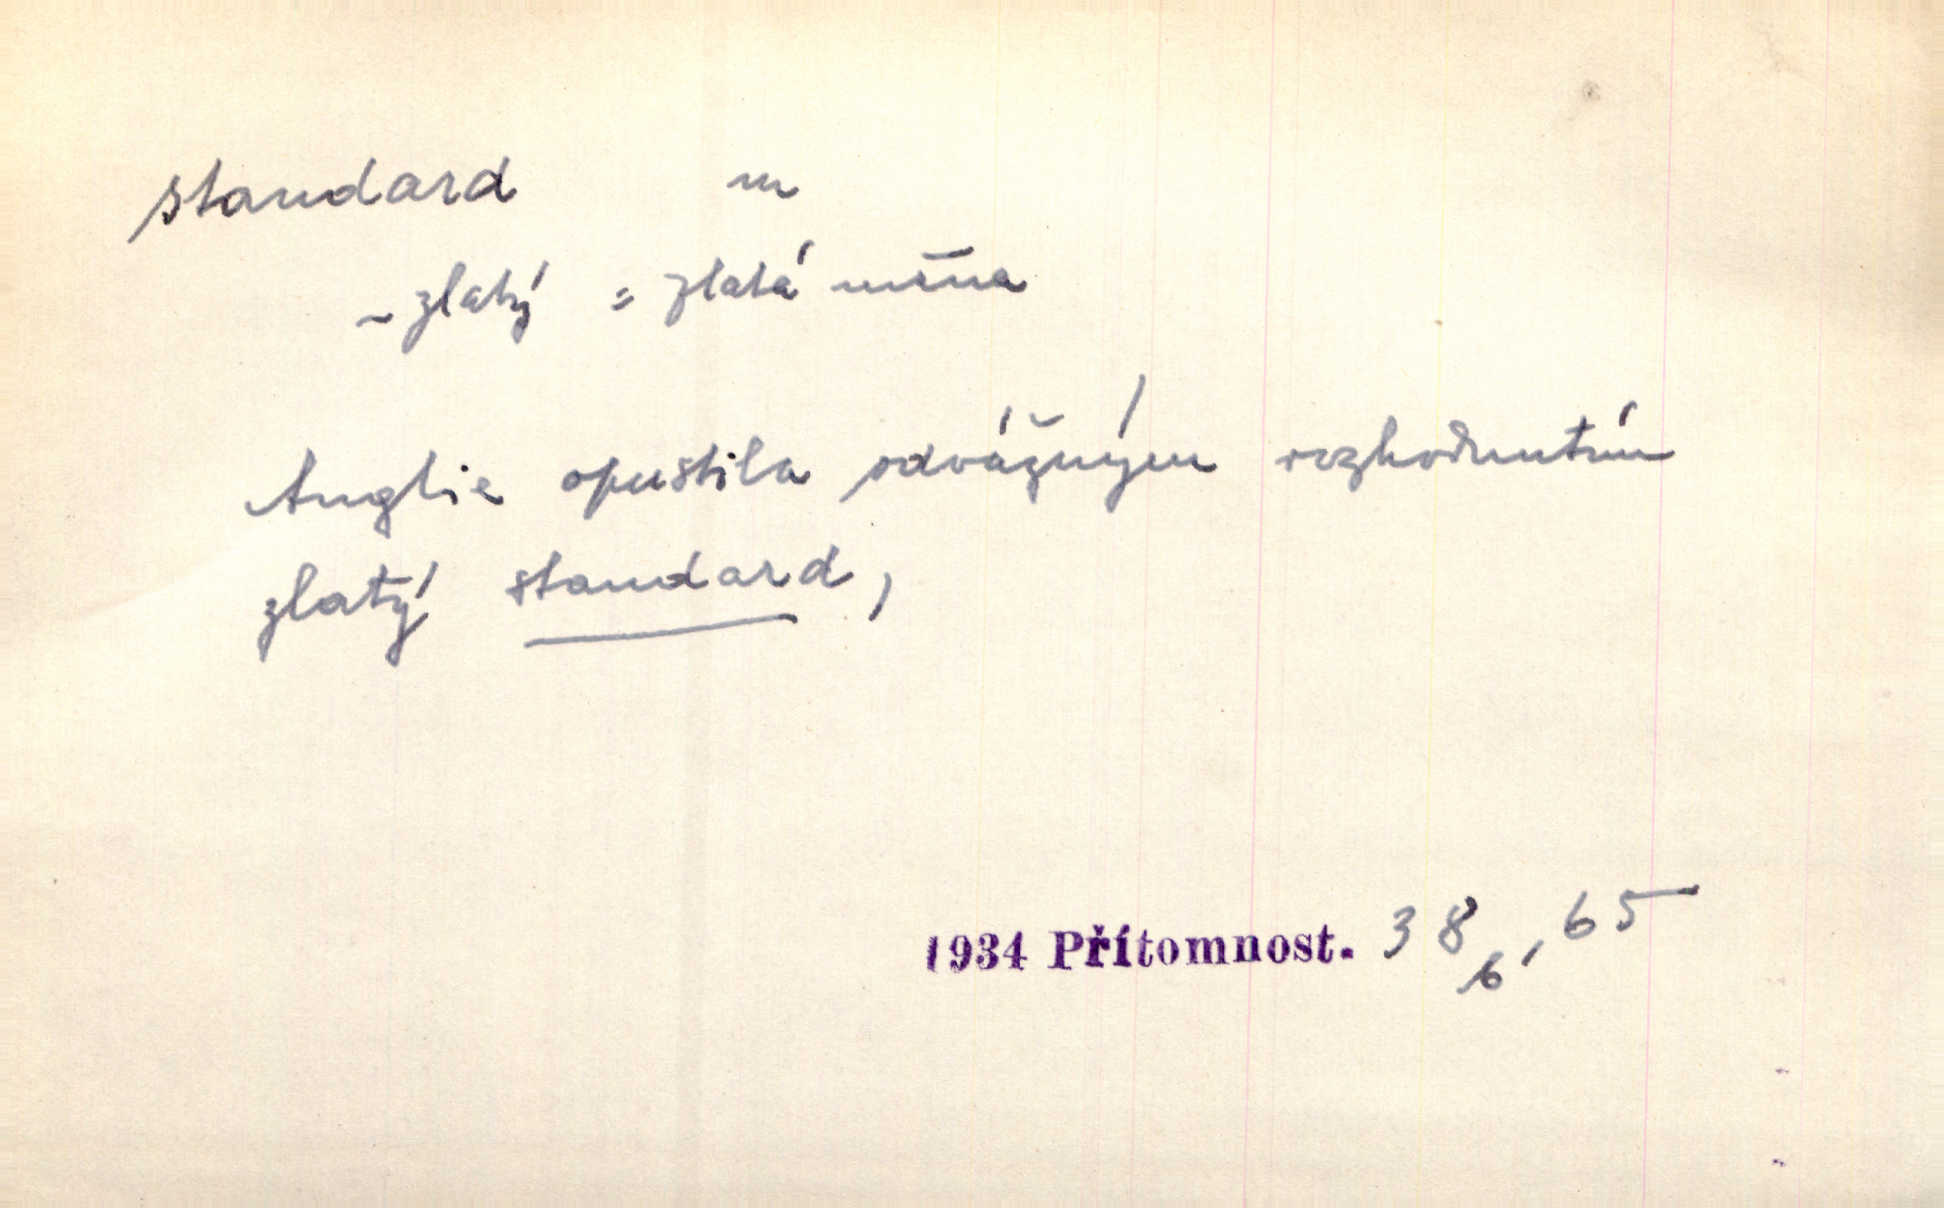 standard m
~ zlatý = zlatá měna
Anglie opustila odvážným rozhodnutím
zlatý standard,
1934 Přítomnost. 38/6, 65